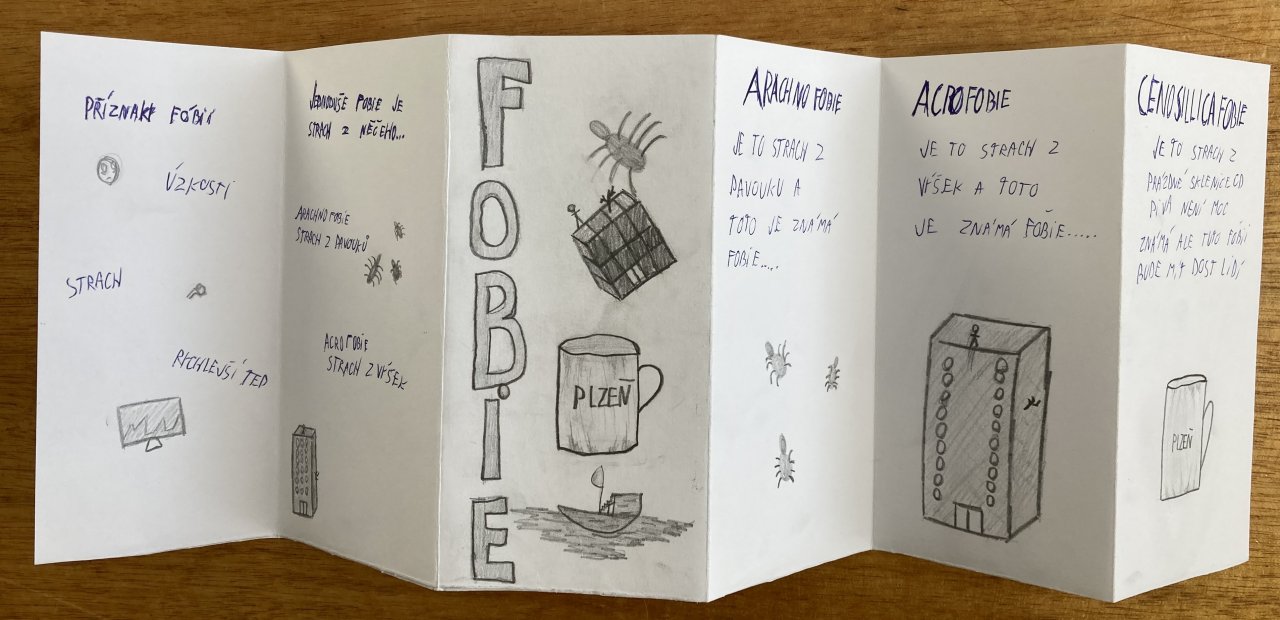 PŘÍZNAKY FÓBIÍ
ÚZKOSTI
STRACH
RYCHLEJŠÍ TEP
JEDNODUŠE FOBIE JE
STRACH Z NĚČEHO...
ARACHNOFOBIE
STRACH Z PAVOUKŮ
ACROFOBIE
STRACH Z VÝŠEK
FOBIE
PLZEŇ
ARACHNOFOBIE
JE TO STRACH Z
PAVOUKU A
TOTO JE ZNÁMÁ
FOBIE....
ACROFOBIE
JE TO STRACH Z
VÝŠEK A TOTO
JE ZNÁMÁ FOBIE.....
CENOSILLICAFOBIE
JE TO STRACH Z
PRÁZDNÉ SKLENICE OD
PIVA NENÍ MOC
ZNÁMÁ ALE TUTO FOBII
BUDE MÝT DOST LIDÍ
PLZEŇ